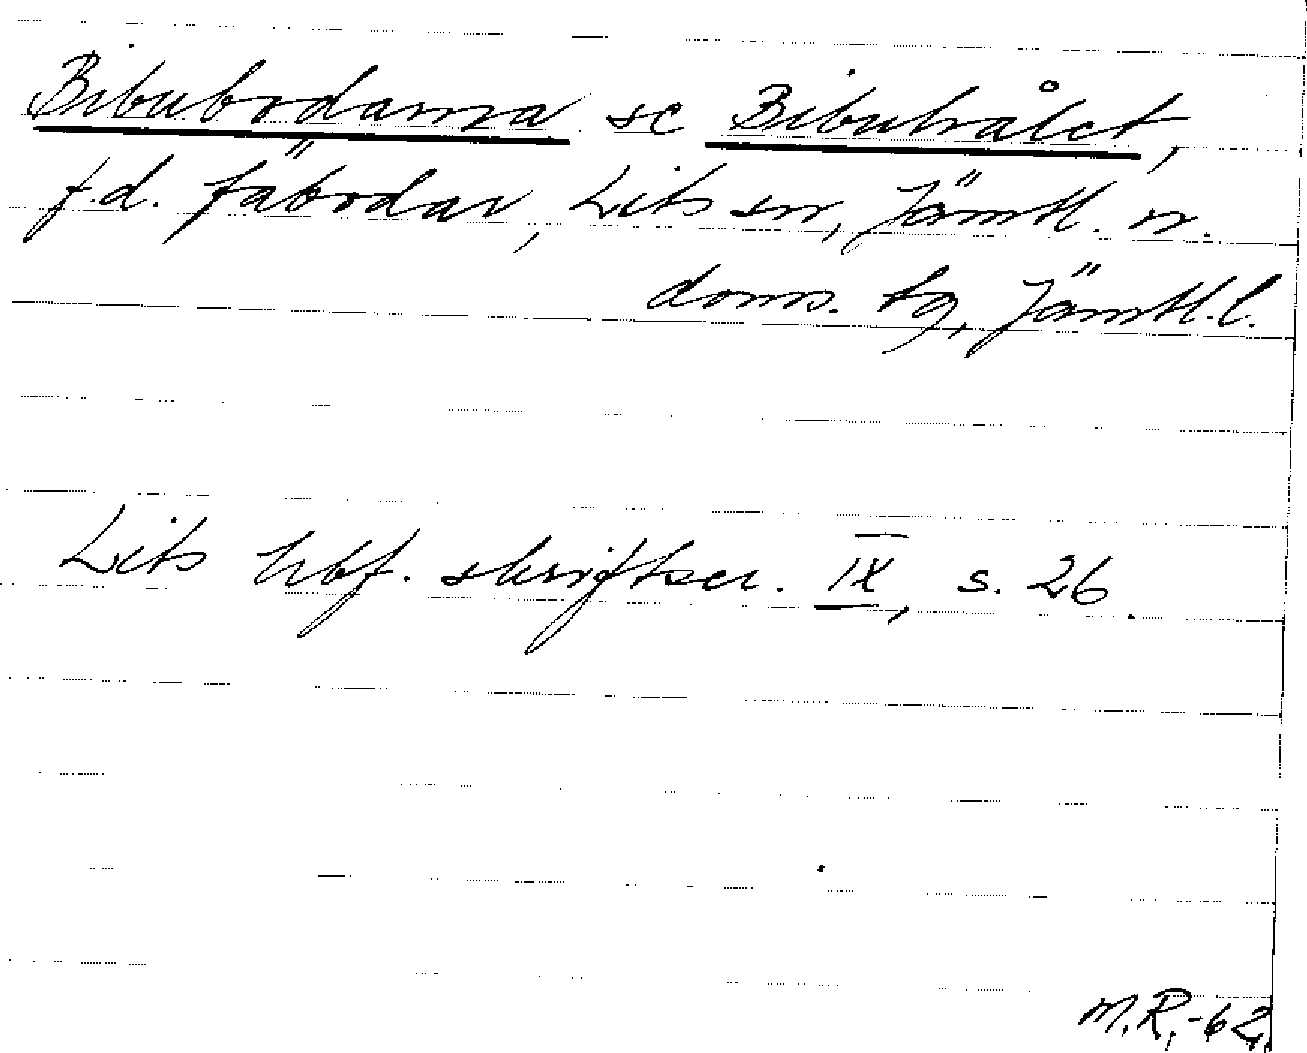 Bibubodarna se Bibuhålet,
f.d. fäbodar, Lits sn, Jämtl. n.
doms. tg, Jämtl.l.
Lits hbf. skriftser. IX, s. 26.
M.R.-62.